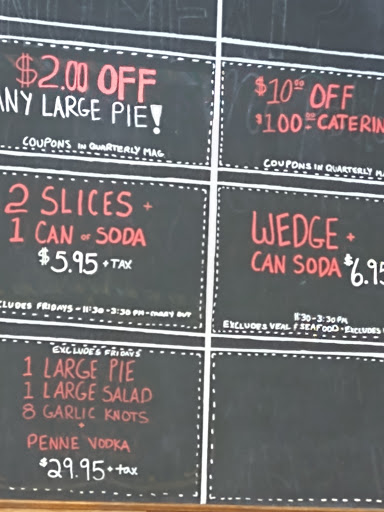 $2.00 OFF
ANY LARGE PIE!
COUPONS IN QUARTERLY MAG
$10.00 OFF
$100.00 CATERIN
COUPONS IN QUARTERLY M
2 SLICES +
1 CAN OF SODA
$5.95 + TAX
CLUDES FRIDAYS - 11:30 - 3:30 PM - CARRY OUT
WEDGE +
CAN SODA $6.95
11:30 - 3:30 PM
EXCLUDES VEAL & SEAFOOD - EXCLUDES
EXCLUDES FRIDAYS
1 LARGE PIE
1 LARGE SALAD
8 GARLIC KNOTS
+
PENNE VODKA
$29.95 + tax